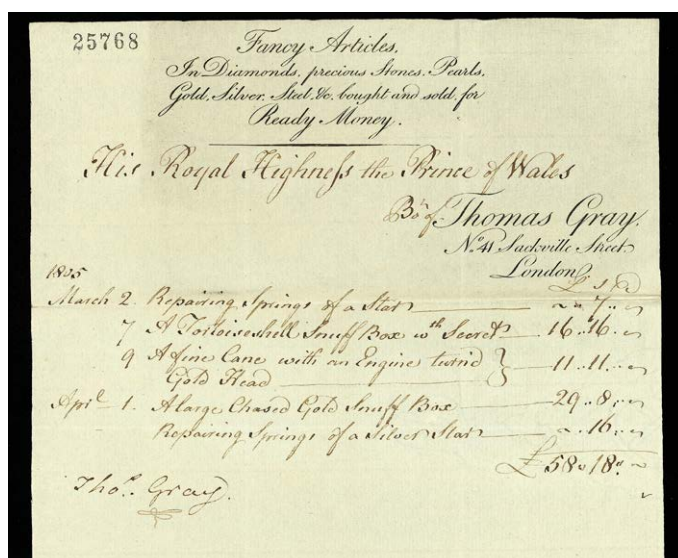 25768
Fancy Articles,
In Diamonds, precious Stones, Pearls,
Gold, Silver, Steel, &c. bought and sold, for
Ready Money.
His Royal Highness the Prince of Wales
Bo.t of Thomas Gray.
No. 41 Sackville Street
London
1805
£ s d
March 2. Repairing Springs of a Star — " " 7 " "
7 A Tortoiseshell Snuff Box wth Secret — 16 " 16 " "
9 A fine Cane with an Engine turn'd } 11 " 11 " "
Gold Head
April 1. A large Chased Gold Snuff Box — 29 " 8 " "
Repairing Springs of a Silver Star — " 16 " "
£ 58 " 18 " "
Thos. Gray.